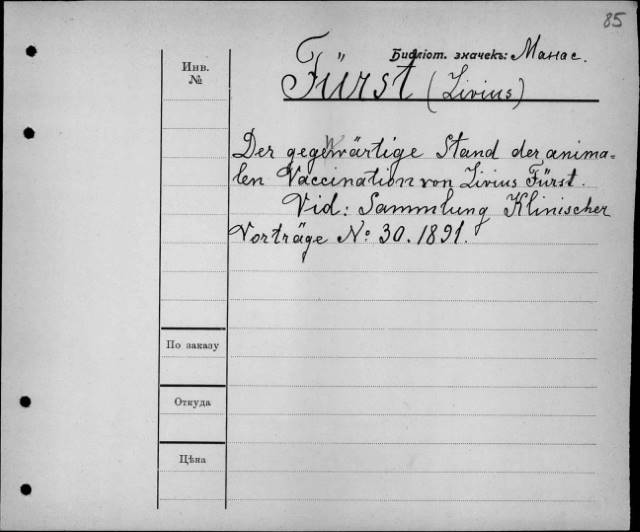 85
Библіот. значекъ: Манас.
Инв.
№
Fürst (Livius)
Der gegenwärtige Stand der anima-
len Vaccination von Livius Fürst.
Vid: Sammlung Klinischer
Vorträge No 30. 1891.
По заказу
Откуда
Цѣна